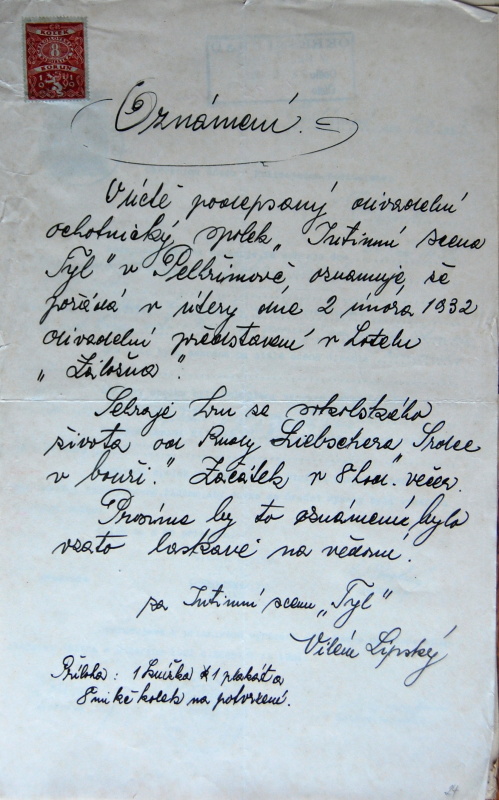 KOLEK
8
KORUN
Oznámení.
V úctě podepsaný divadelní
ochotnický spolek „Intimní scena
Tyl" v Pelhřimově oznamuje, že
pořádá v úterý dne 2 února 1932
divadelní představení v hotelu
„Záložna".
Sehraje hru se sokolského
života od Rudy Liebschera „Srdce
v bouři." Začátek v 8 hod. večer.
Prosíme by to oznámení bylo
vzato laskavě na vědomí.
za Intimní scenu „Tyl"
Vilém Lipský
Příloha: 1 knížka 1 plakát a
8 mi kč kolek na potvrzení.
24